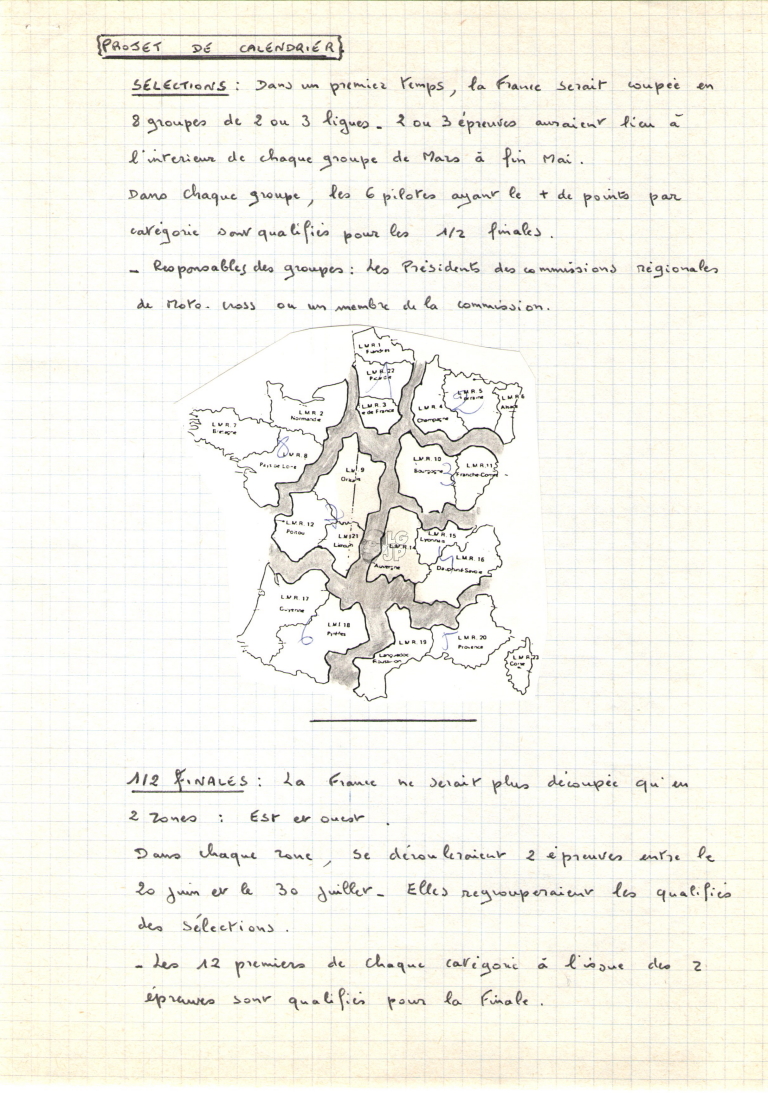 PROJET DE CALENDRIER
SELECTIONS : Dans un premier temps, la France serait coupée en
8 groupes de 2 ou 3 ligues - 2 ou 3 épreuves auraient lieu à
l'interieur de chaque groupe de Mars à fin Mai.
Dans chaque groupe, les 6 pilotes ayant le + de points par
catégorie sont qualifiés pour les 1/2 finales.
- Responsables des groupes : Les Présidents des commissions régionales
de Moto-cross ou un membre de la commission.
L.M.R.1
Flandres
L.M.R.22
Picardie
1
L.M.R.5
Lorraine
2
L.M.R.6
Alsace
L.M.R.2
Normandie
L.M.R.3
e de France
L.M.R.4
Champagne
L.M.R.7
Bretagne
8
L.M.R.8
Pays de Loire
L.M.R.10
Bourgogne
3
L.M.R.11
Franche-Comté
L.M.R.9
L.M.R.12
Poitou
7
L.M.21
Limous
L.M.R.14
Auvergne
L.M.R.15
Lyonnais
4
L.M.R.16
Dauphiné-Savoie
LG
JP
L.M.R.17
Guyenne
6
L.M.R.18
Pyrénées
L.M.R.19
Languedoc
Roussillon
5
L.M.R.20
Provence
L.M.R.23
Corse
1/2 FINALES : La France ne serait plus découpée qu'en
2 zones : Est et ouest.
Dans chaque zone, se dérouleraient 2 épreuves entre le
20 juin et le 30 juillet - Elles regrouperaient les qualifiés
des sélections.
- Les 12 premiers de chaque catégorie à l'issue des 2
épreuves sont qualifiés pour la Finale.